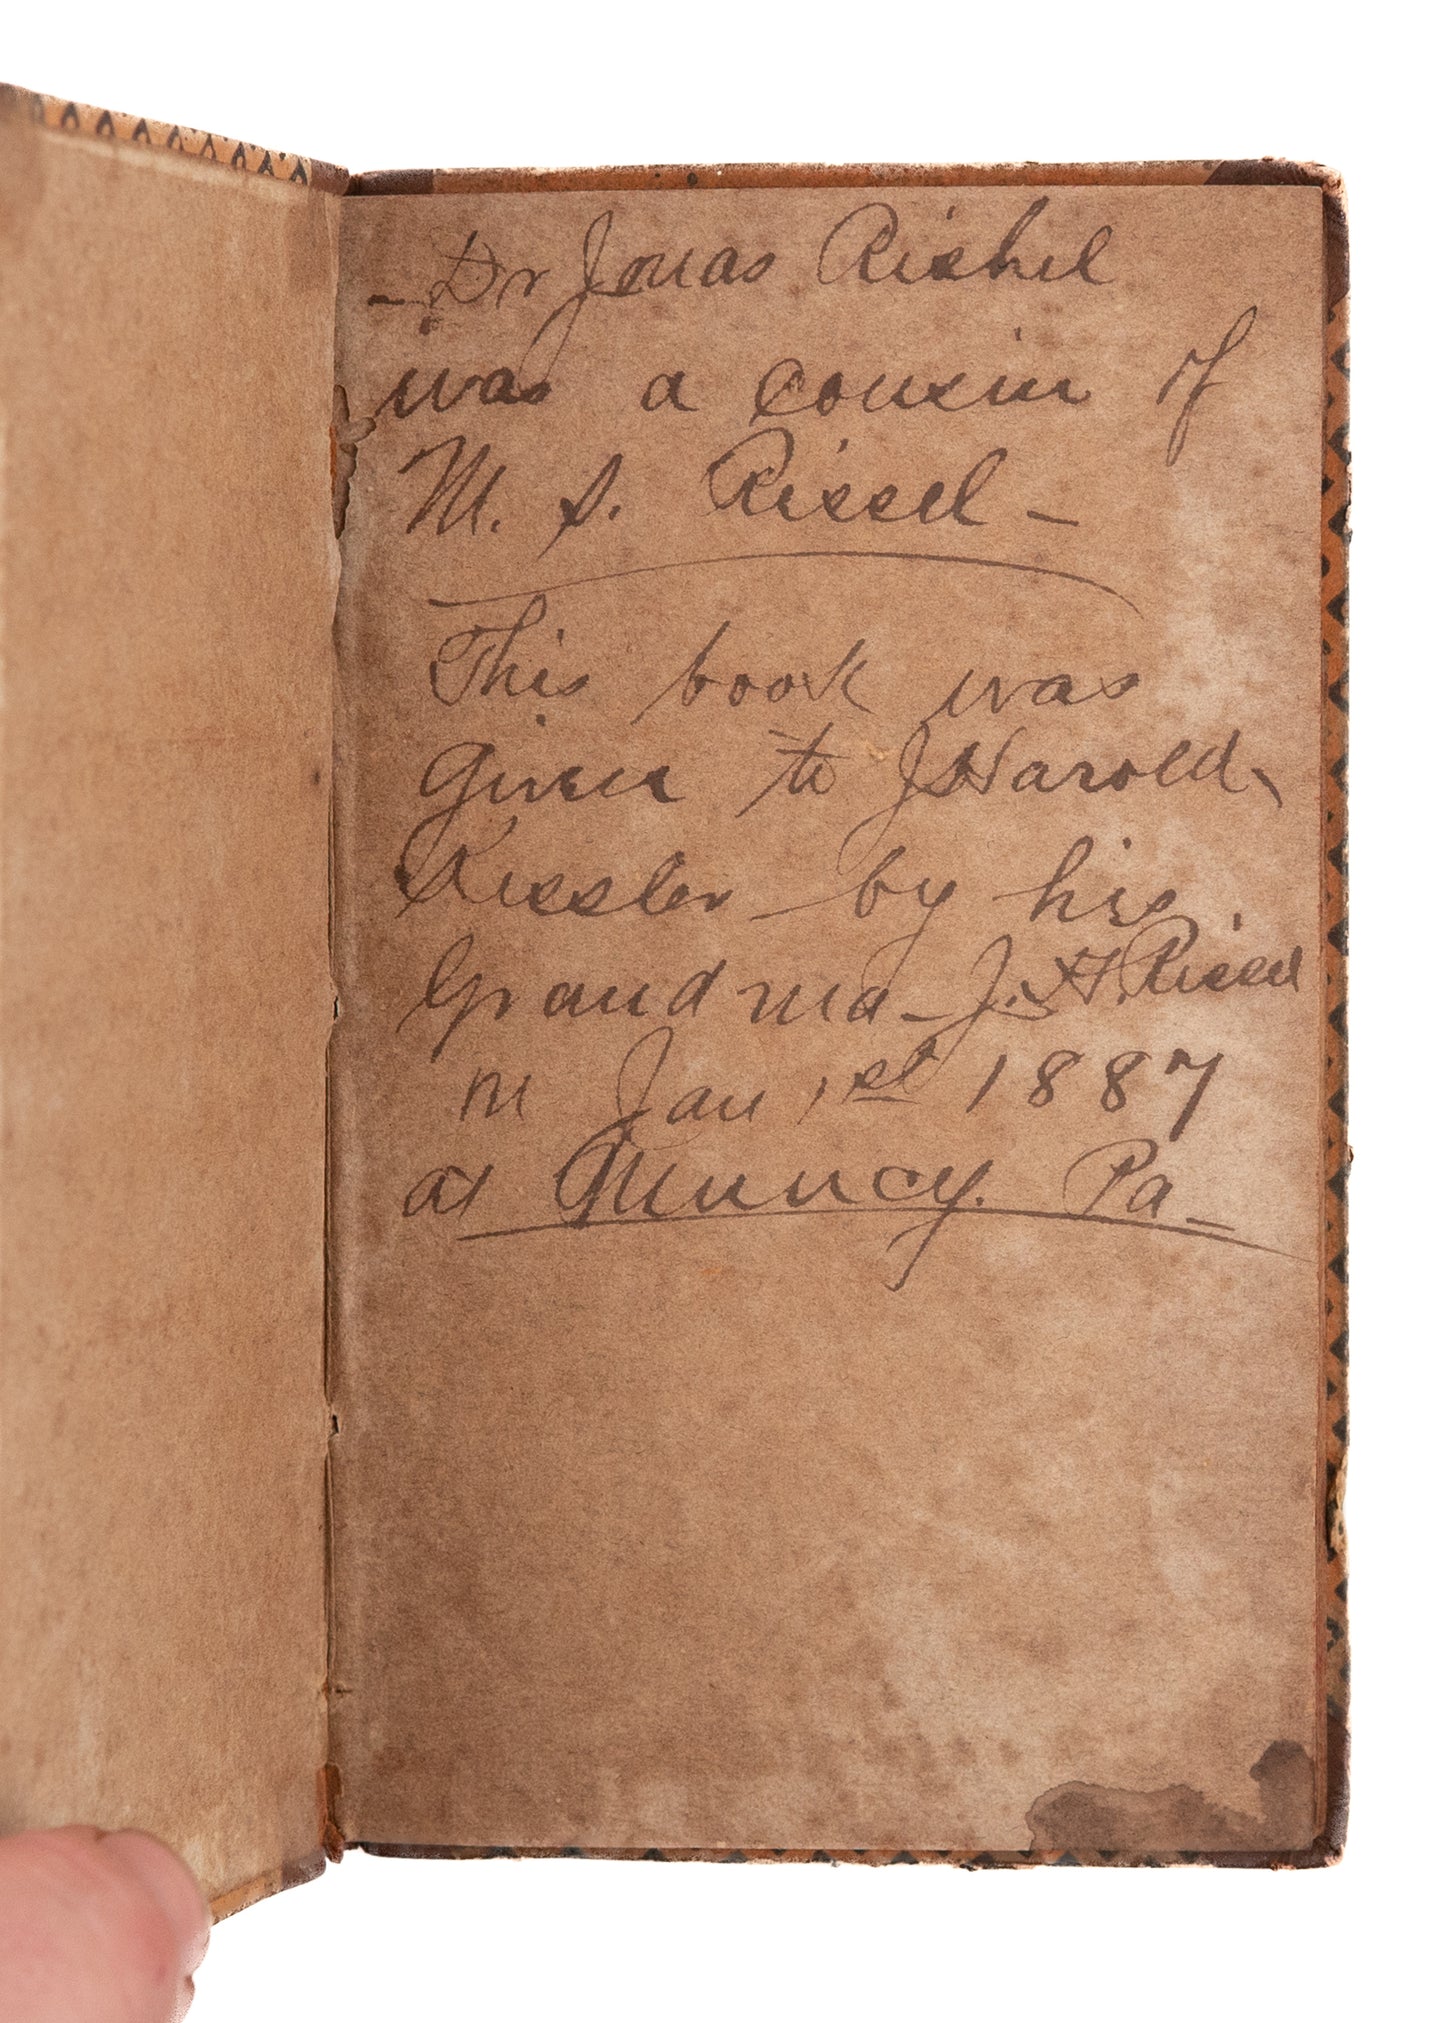 - Dr Jonas Rishel
was a cousin of
M. S. Rissel -
This book was
given to J Harold
Rissler - by his
Grandma - J. H. Rissel
on Jan 1st 1887
at Muncy. Pa -